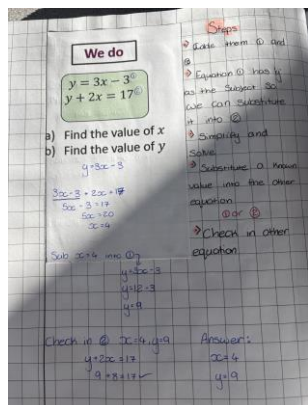 We do
y = 3x - 3 ①
y + 2x = 17 ②
a) Find the value of x
b) Find the value of y
y=3x-3
3x-3+2x=17
5x-3=17
5x=20
x=4
Sub x=4 into ①
y=3x-3
y=12-3
y=9
Check in ② x=4, y=9
y+2x=17
9+8=17✓
Steps
→ Label them ① and
②
→ Equation ① has y
as the subject so
we can substitute
it into ②
→ Simplify and
Solve
→ Substitute a known
value into the other
equation
① or ②
→ Check in other
equation
Answer:
x=4
y=9